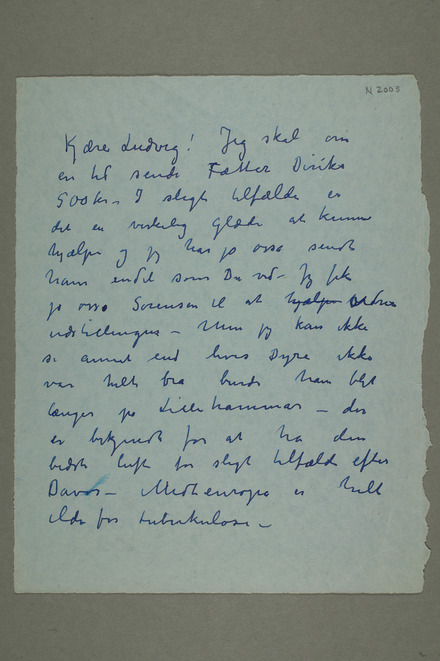 N 2005
Kjære Ludvig! Jeg skal om
en tid sende Fætter Diriks
500 kr – I sligt tilfælde er
det en virkelig Glæde at kunne
hjælpe og jeg har jo osså sendt
ham endel som Du ved – Jeg fik
jo osså Sørensen til at hjælpe ordne
udstillingen – Men jeg kan ikke
se annet end hvis Dyre ikke
var helt bra burde han blit
længer på Lillehammer – der
er bekjendt for at ha den
bedste luft for sligt tilfælde efter
Davos – Mellemeuropa er helt
ilde for tuberkulose –